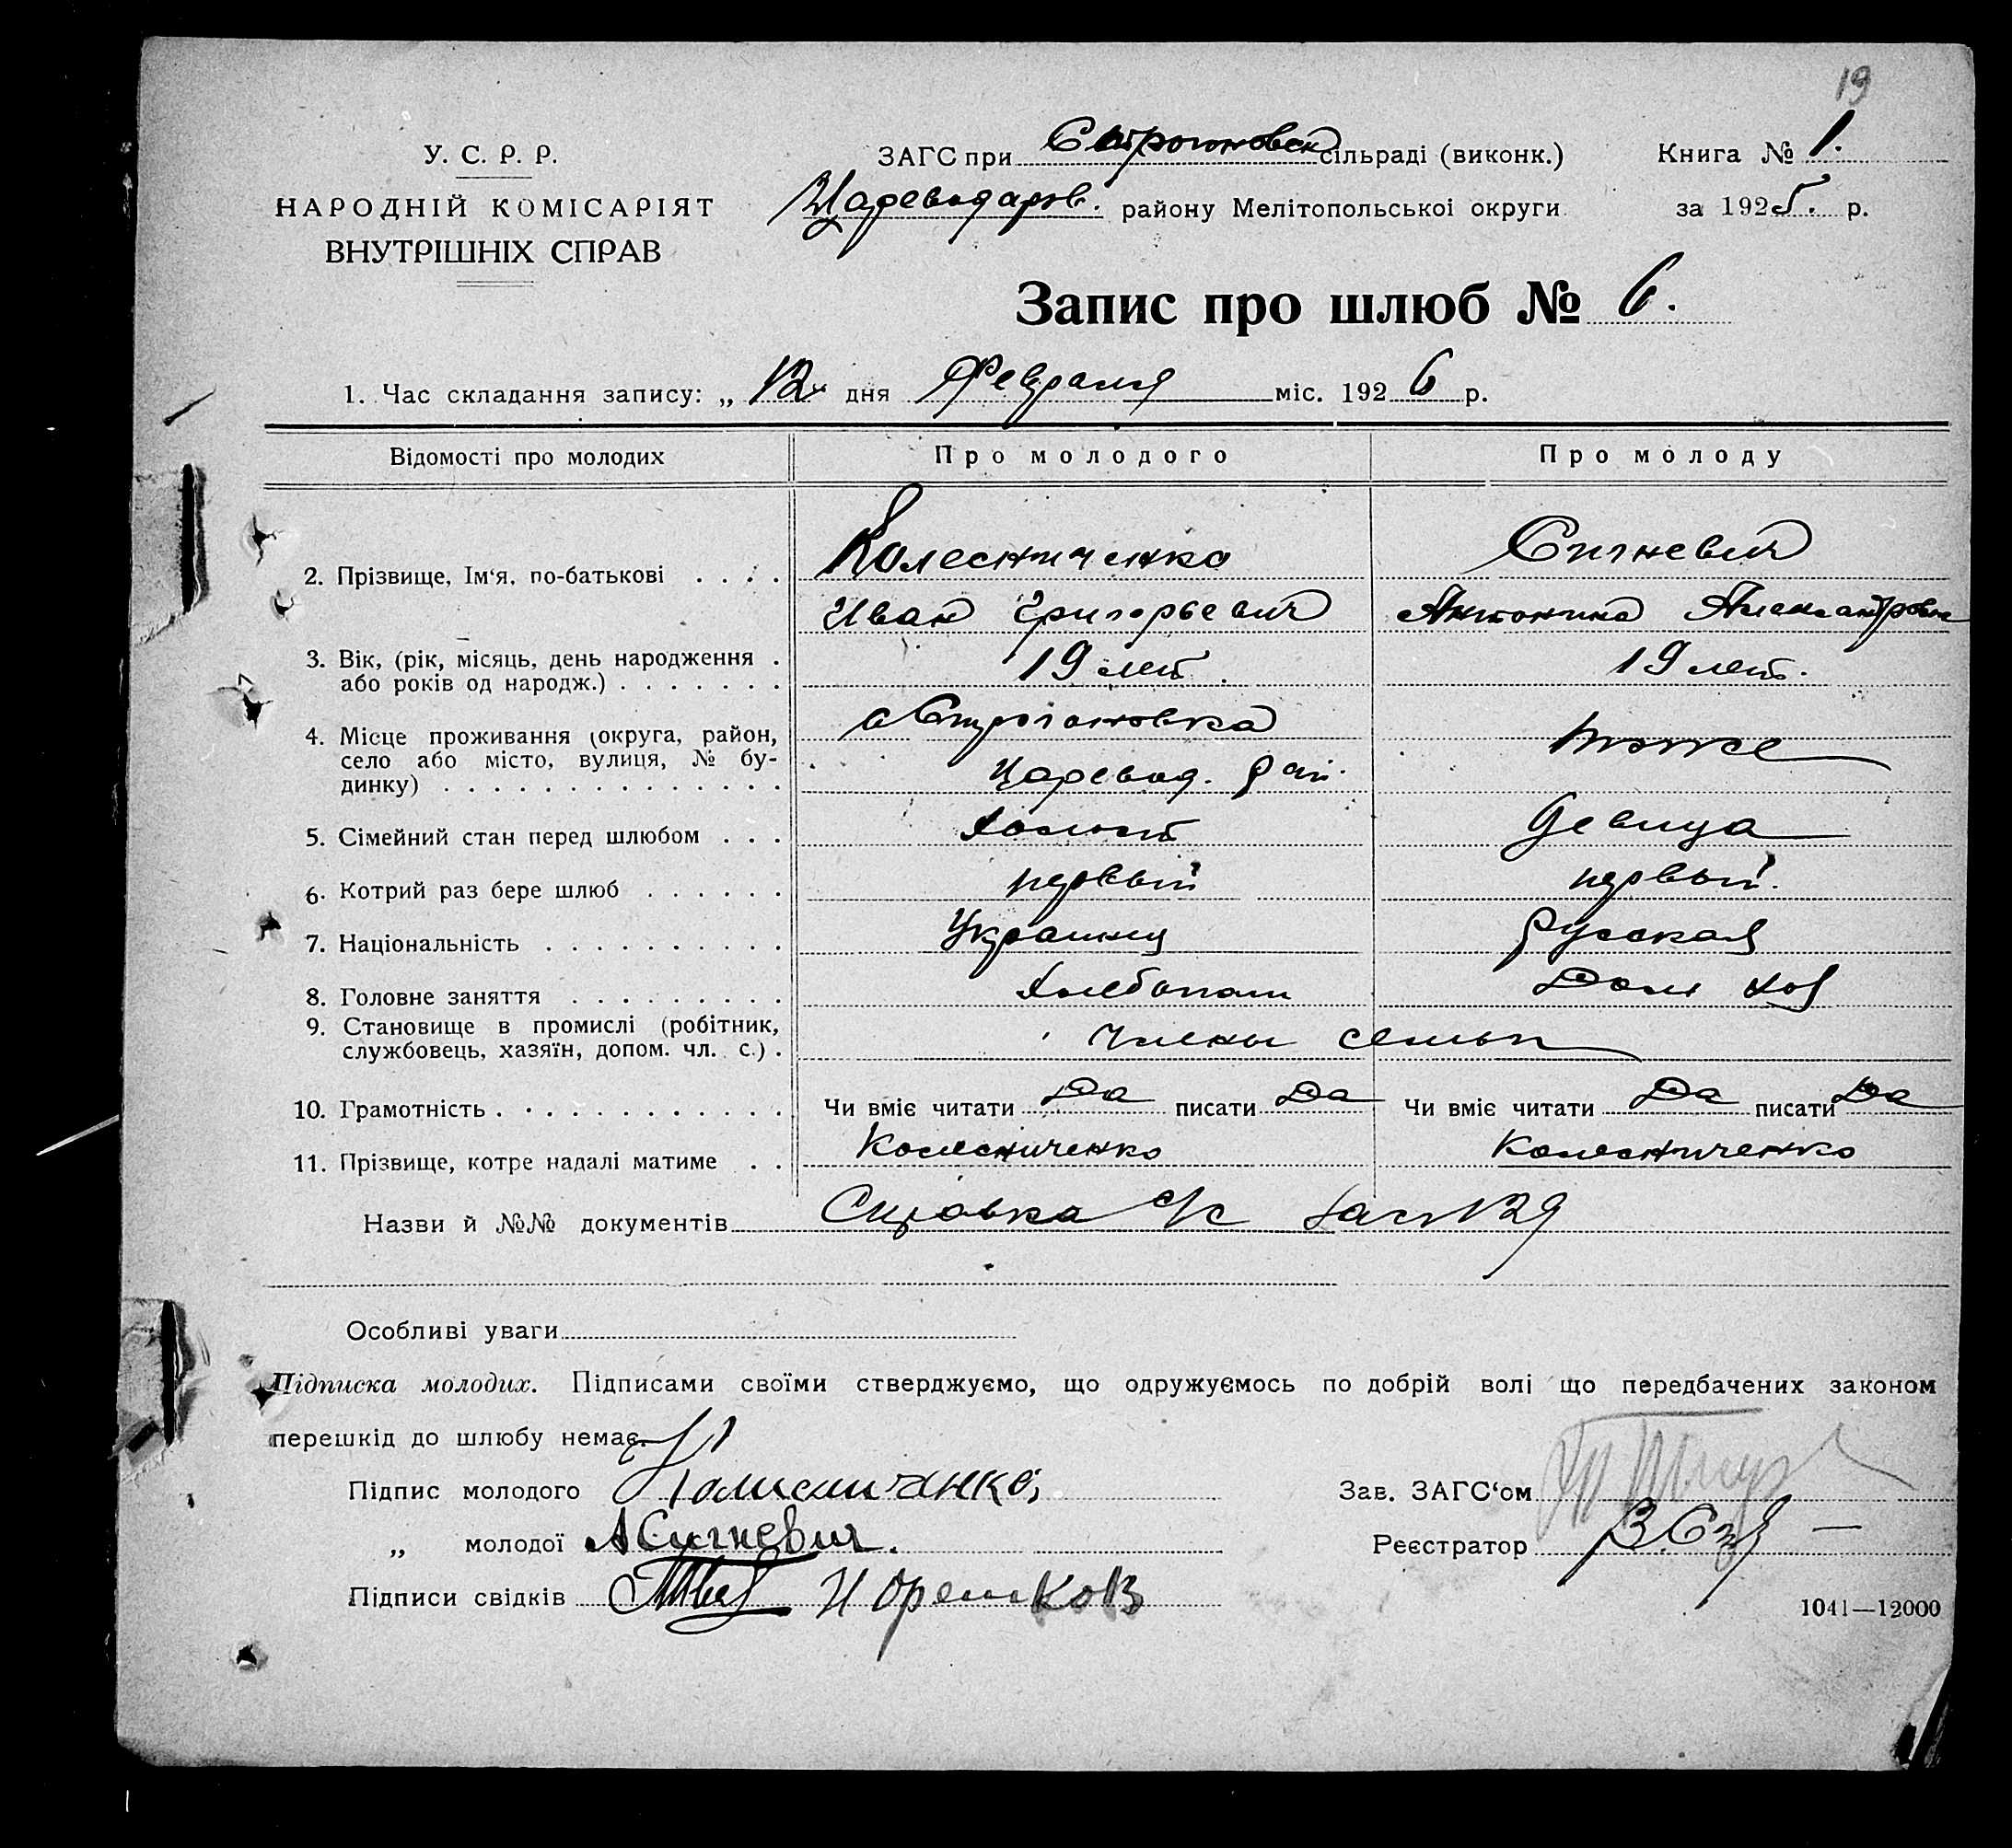 19
У. С. Р. Р.
НАРОДНІЙ КОМІСАРІЯТ
ВНУТРІШНІХ СПРАВ
ЗАГС при Строгоновск сільраді (виконк.)
Книга № 1.
Цареводаров. району Мелітопольської округи
за 1925. р.
Запис про шлюб № 6.
1. Час складання запису: „ 12 " дня Февраля міс. 1926 р.
Відомості про молодих
Про молодого
Про молоду
2. Прізвище, Ім'я, по-батькові . . . .
Колесниченко
Сигневич
Иван Григорьевич
Антонина Александровна
3. Вік, (рік, місяць, день народження .
або років од народж.) . . . . . . .
19 лет.
19 лет.
4. Місце проживання (округа, район,
село або місто, вулиця, № бу-
динку) . . . . . . . . . . . . . .
с Строгоновка
Царевод. рай.
тоже
5. Сімейний стан перед шлюбом . . .
Холост
Девица
6. Котрий раз бере шлюб . . . . . .
первый
первый.
7. Національність . . . . . . . . . .
Украинец
Русская
8. Головне заняття . . . . . . . . .
Хлебопаш
Дом хоз
9. Становище в промислі (робітник,
службовець, хазяїн, допом. чл. с.) .
Члены семьи
10. Грамотність . . . . . . . . . . . .
Чи вміє читати Да писати Да
Чи вміє читати Да писати Да
11. Прізвище, котре надалі матиме . .
Колесниченко
Колесниченко
Назви й №№ документів Справка с/с
Особливі уваги
Підписка молодих. Підписами своїми стверджуємо, що одружуємось по добрій волі що передбачених законом
перешкід до шлюбу немає.
Підпис молодого Колисничанко
Зав. ЗАГС'ом
„ молодої АСигневич.
Реєстратор
Підписи свідків И Орешков
1041—12000